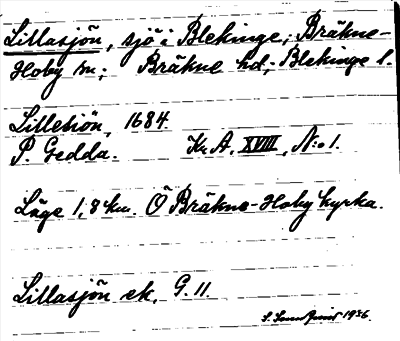 Lillasjön, sjö i Blekinge; Bräkne-
Hoby sn; Bräkne hd; Blekinge l.
Lillesiön, 1684.
P. Gedda. Kr. A. XVIII, N:o 1.
Läge 1,8 km. Ö Bräkne-Hoby kyrka.
Lillasjön ek. G. 11.
1936.